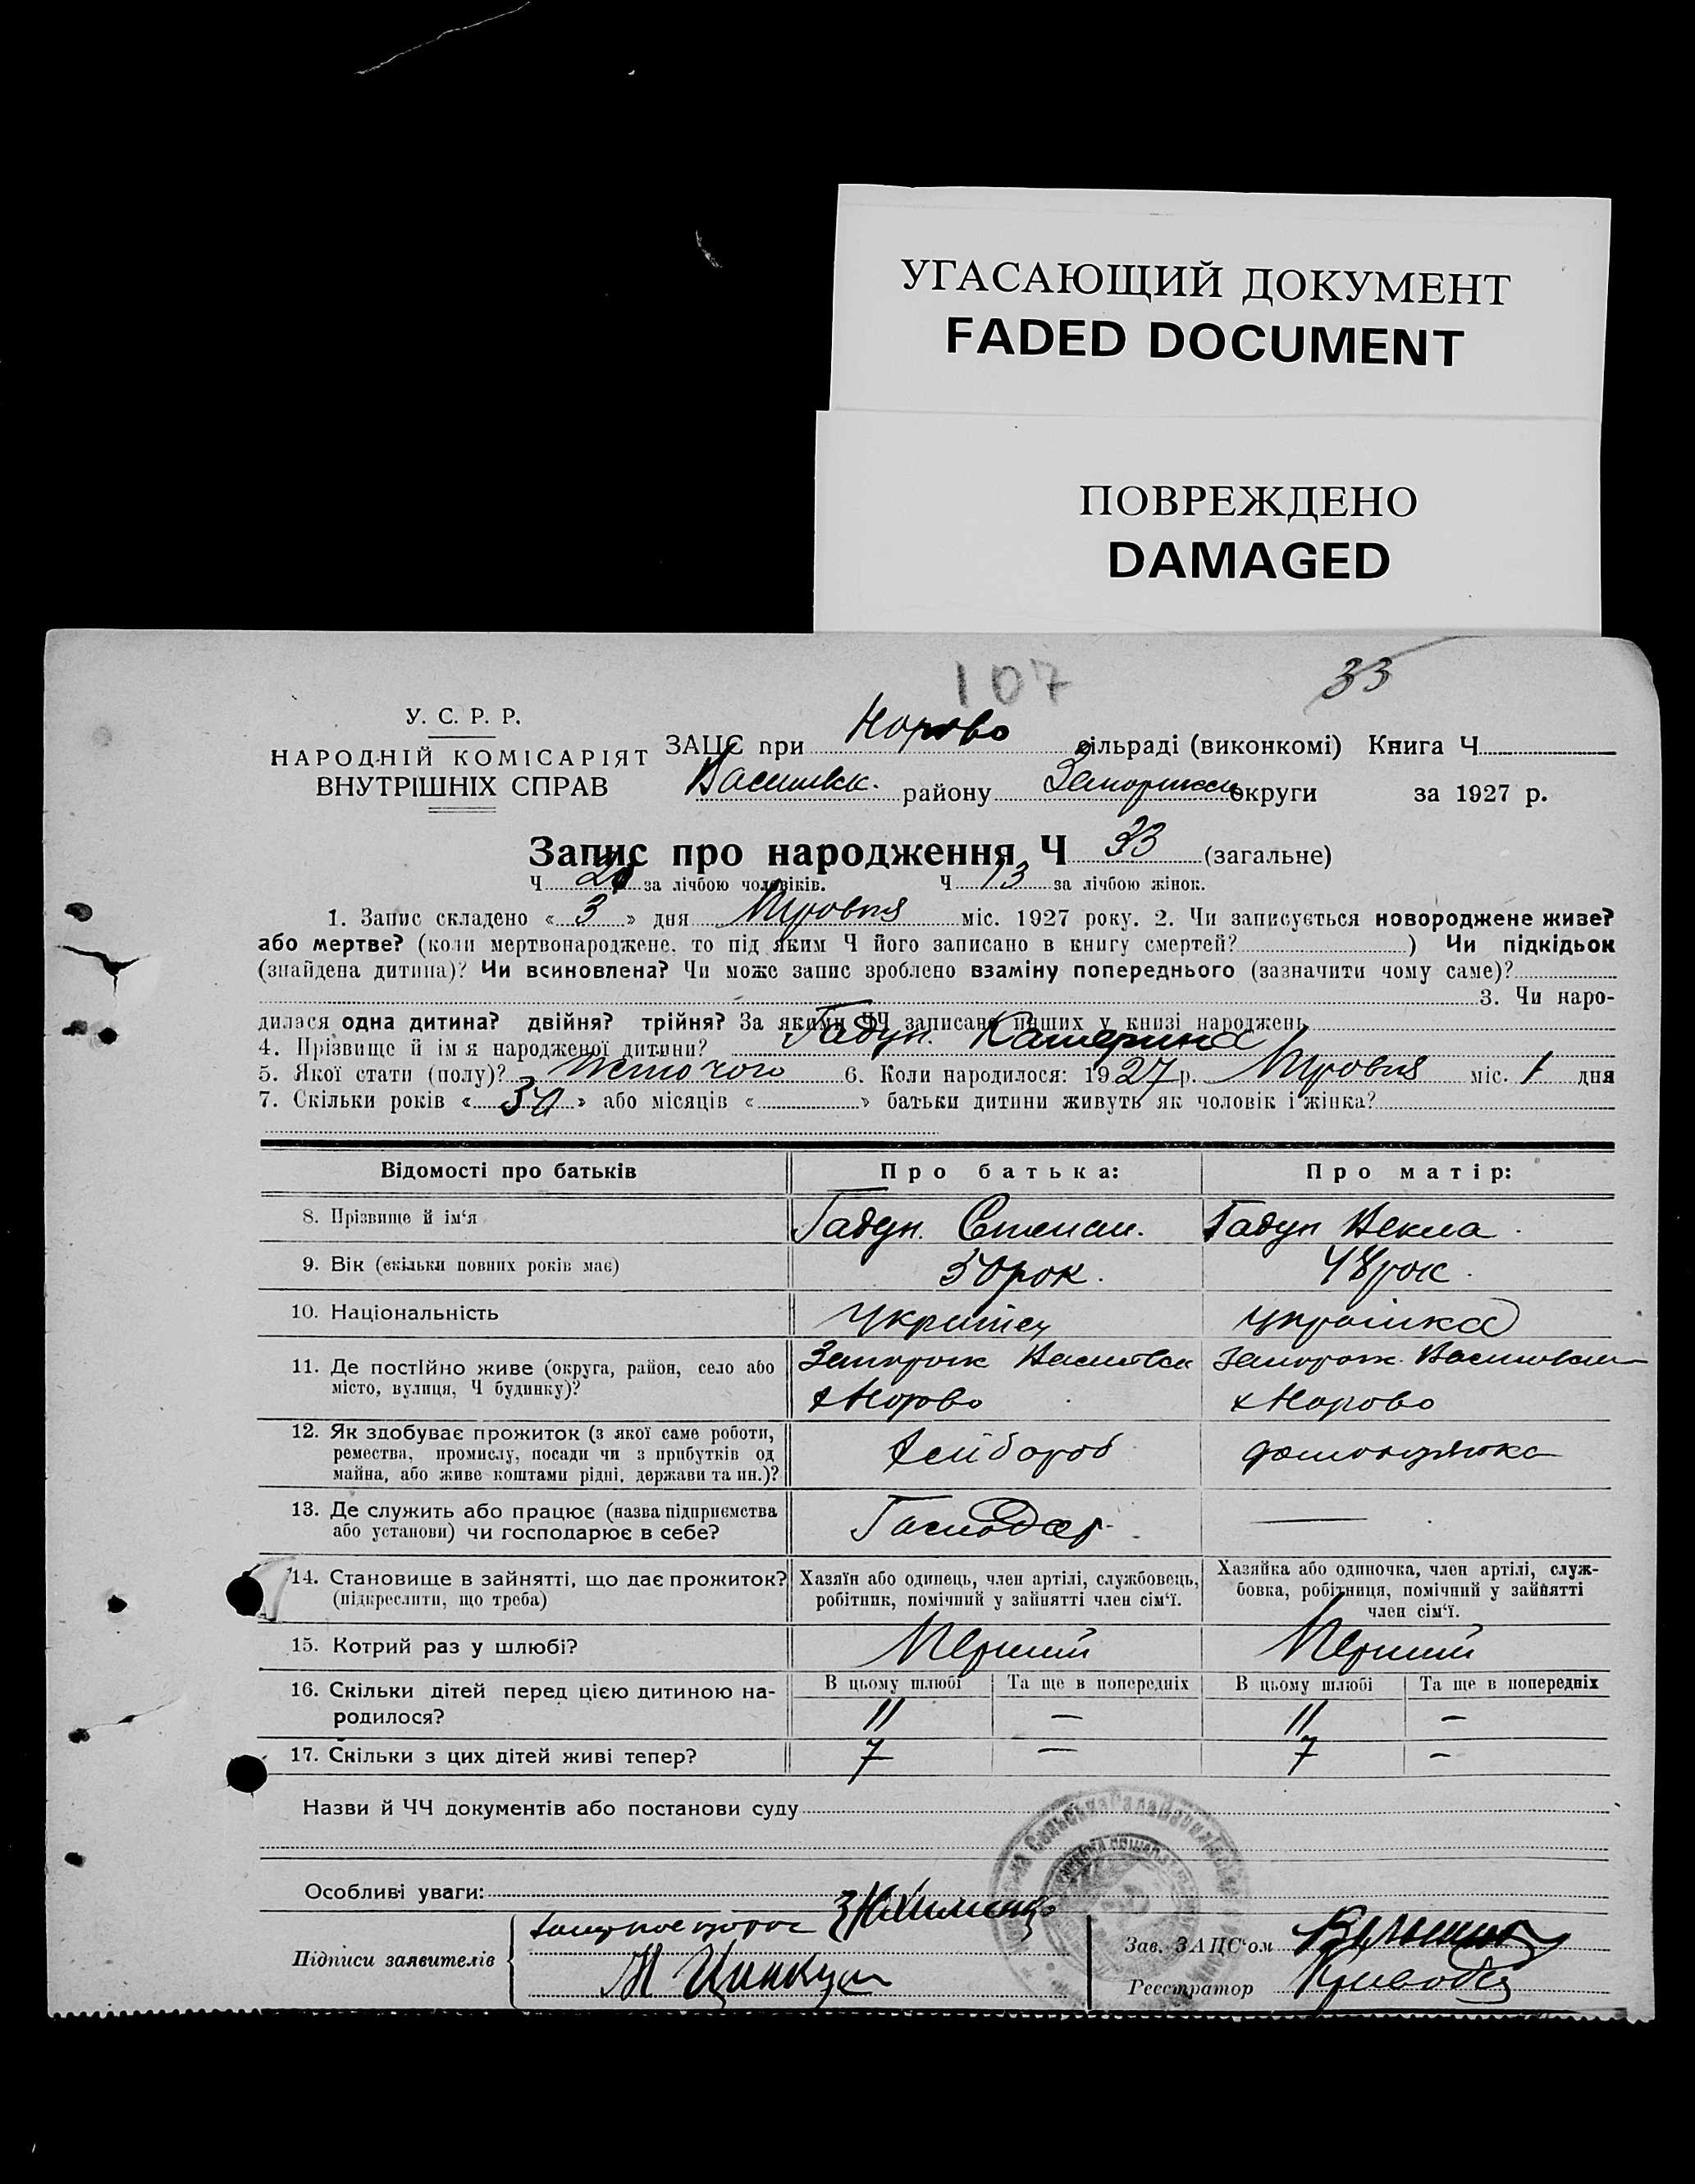 УГАСАЮЩИЙ ДОКУМЕНТ
FADED DOCUMENT
ПОВРЕЖДЕНО
DAMAGED
107 33
У. С. Р. Р.
НАРОДНІЙ КОМІСАРІЯТ
ВНУТРІШНІХ СПРАВ
ЗАЦС при сільраді (виконкомі) Книга Ч
району округи за 1927 р.
Запис про народження Ч 33 (загальне)
Ч 20 за лічбою чоловіків. Ч 13 за лічбою жінок.
1. Запис складено « 3 » дня міс. 1927 року. 2. Чи записується новороджене живе?
або мертве? (коли мертвонароджене, то під яким Ч його записано в книгу смертей? ) Чи підкідьок
(знайдена дитина)? Чи всиновлена? Чи може запис зроблено взаміну попереднього (зазначити чому саме)?
3. Чи наро-
дилася одна дитина? двійня? трійня? За якими ЧЧ записано инших у книзі народжень
4. Прізвище й імя народженої дитини? Гадун. Катерина
5. Якої стати (полу)? Жіночого 6. Коли народилося: 1927 р. міс. 1 дня
7. Скільки років « 30 » або місяців « » батьки дитини живуть як чоловік і жінка?
Відомості про батьків Про батька: Про матір:
8. Прізвище й ім‘я Гадун. Степан. Гадун Векла
9. Вік (скільки повних років має) 50 рок. 48 рок.
10. Національність Українец Українка
11. Де постійно живе (округа, район, село або
місто, вулиця, Ч будинку)?
12. Як здобуває прожиток (з якої саме роботи,
ремества, промислу, посади чи з прибутків од
майна, або живе коштами рідні, держави та ин.)?
Хлібороб
13. Де служить або працює (назва підприємства
або установи) чи господарює в себе?
Господар —
14. Становище в зайнятті, що дає прожиток?
(підкреслити, що треба)
Хазяїн або одинець, член артілі, службовець,
робітник, помічний у зайнятті член сім‘ї.
Хазяйка або одиночка, член артілі, служ-
бовка, робітниця, помічний у зайнятті
член сім‘ї.
15. Котрий раз у шлюбі? Перший Перший
16. Скільки дітей перед цією дитиною на-
родилося?
В цьому шлюбі Та ще в попередніх В цьому шлюбі Та ще в попередніх
11 — 11 —
17. Скільки з цих дітей живі тепер? 7 — 7 —
Назви й ЧЧ документів або постанови суду
Особливі уваги:
Підписи заявителів
Зав. ЗАЦС‘ом
Реєстратор